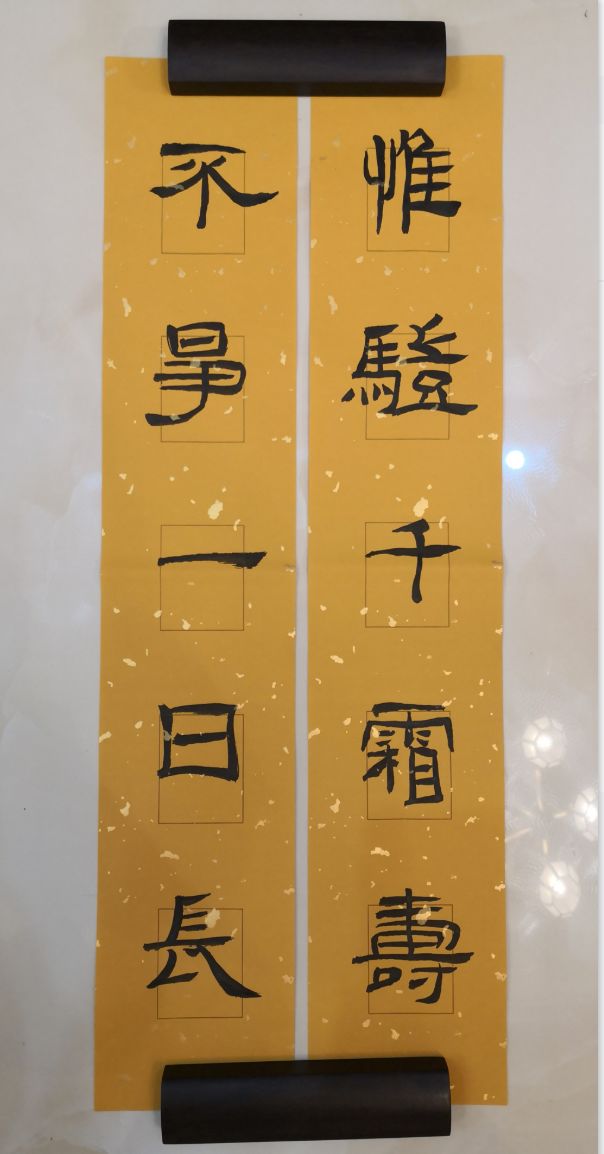 惟驗千霜壽
不爭一日長